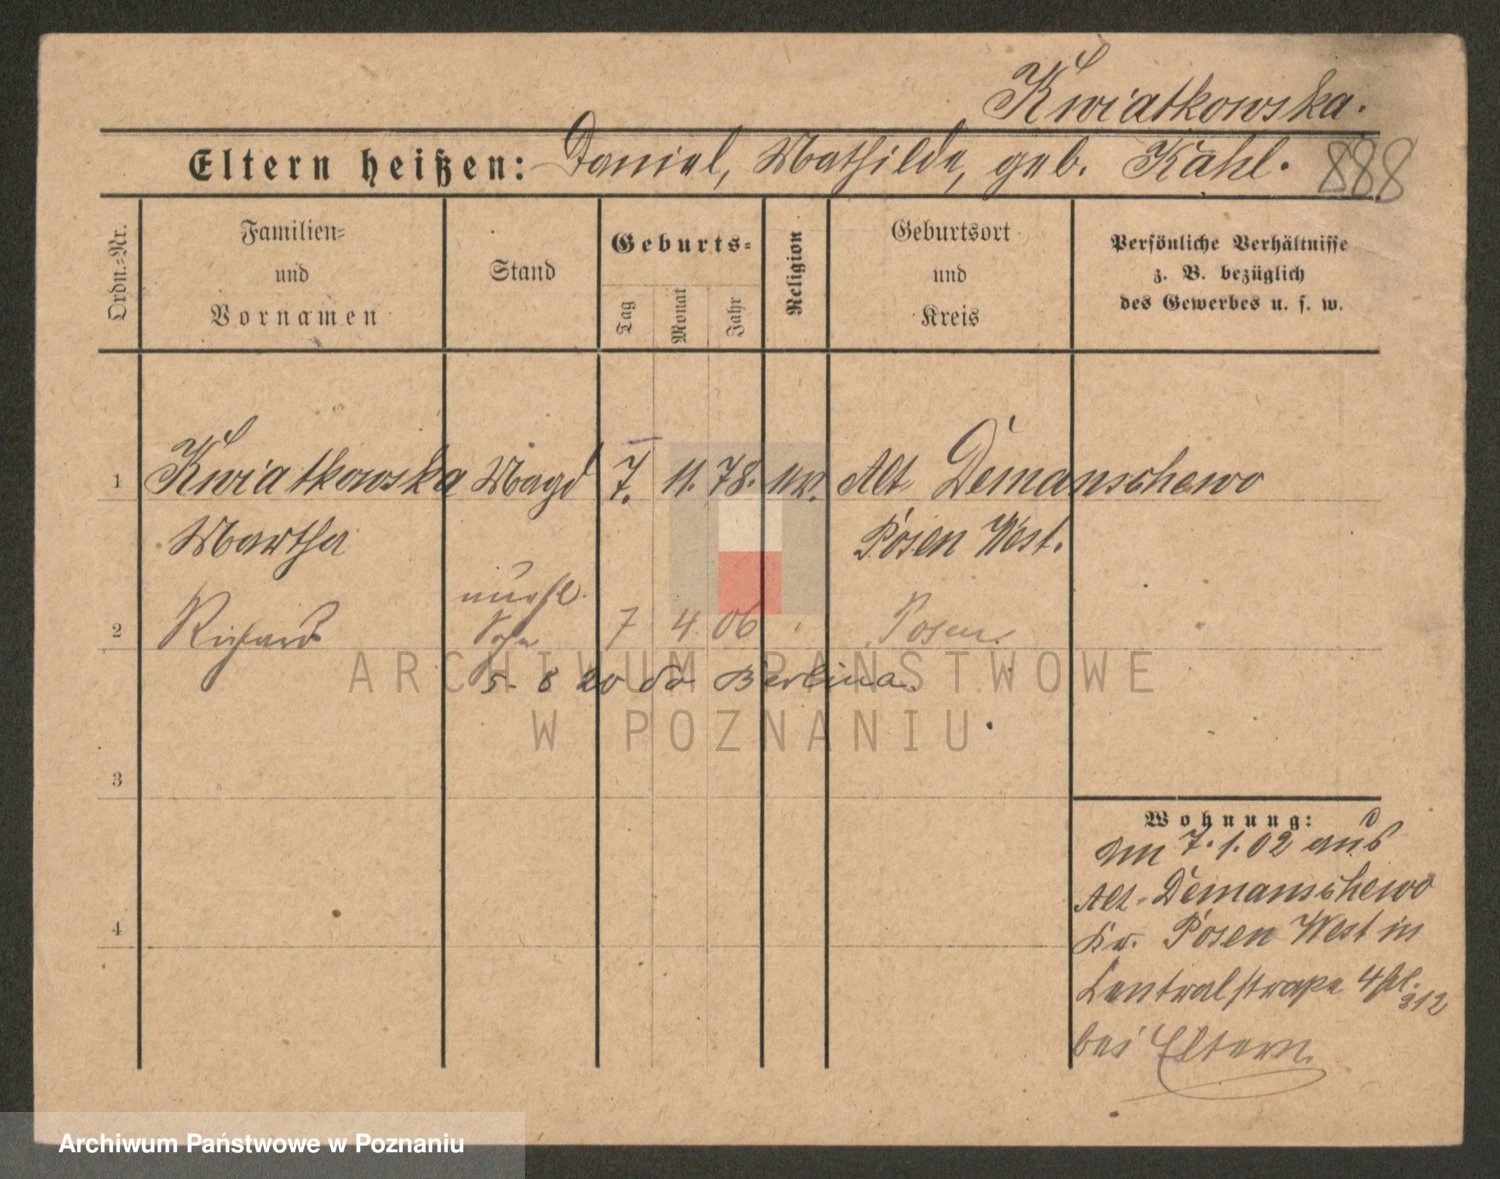 Kwiatkowska.
Eltern heißen: Daniel, Mathilde, geb. Kahl. 888
Ordn.-Nr.
Familien- und Vornamen
Stand
Geburts-
Tag
Monat
Jahr
Religion
Geburtsort und Kreis
Persönliche Verhältnisse z. B. bezüglich des Gewerbes u. s. w.
1 Kwiatkowska Magd 7. 11. 78. Alt Demanschewo
Martha Posen West.
unehl.
2 Richard Sohn 7 4 06 " Posen.
5. 8 20 do Berlina.
ARCHIWUM PAŃSTWOWE
W POZNANIU
3
Wohnung:
7. 1. 02 aus
Alt-Demanschewo
4
Kr. Posen West in
Centralstraße 4
312
bei Eltern.
Archiwum Państwowe w Poznaniu